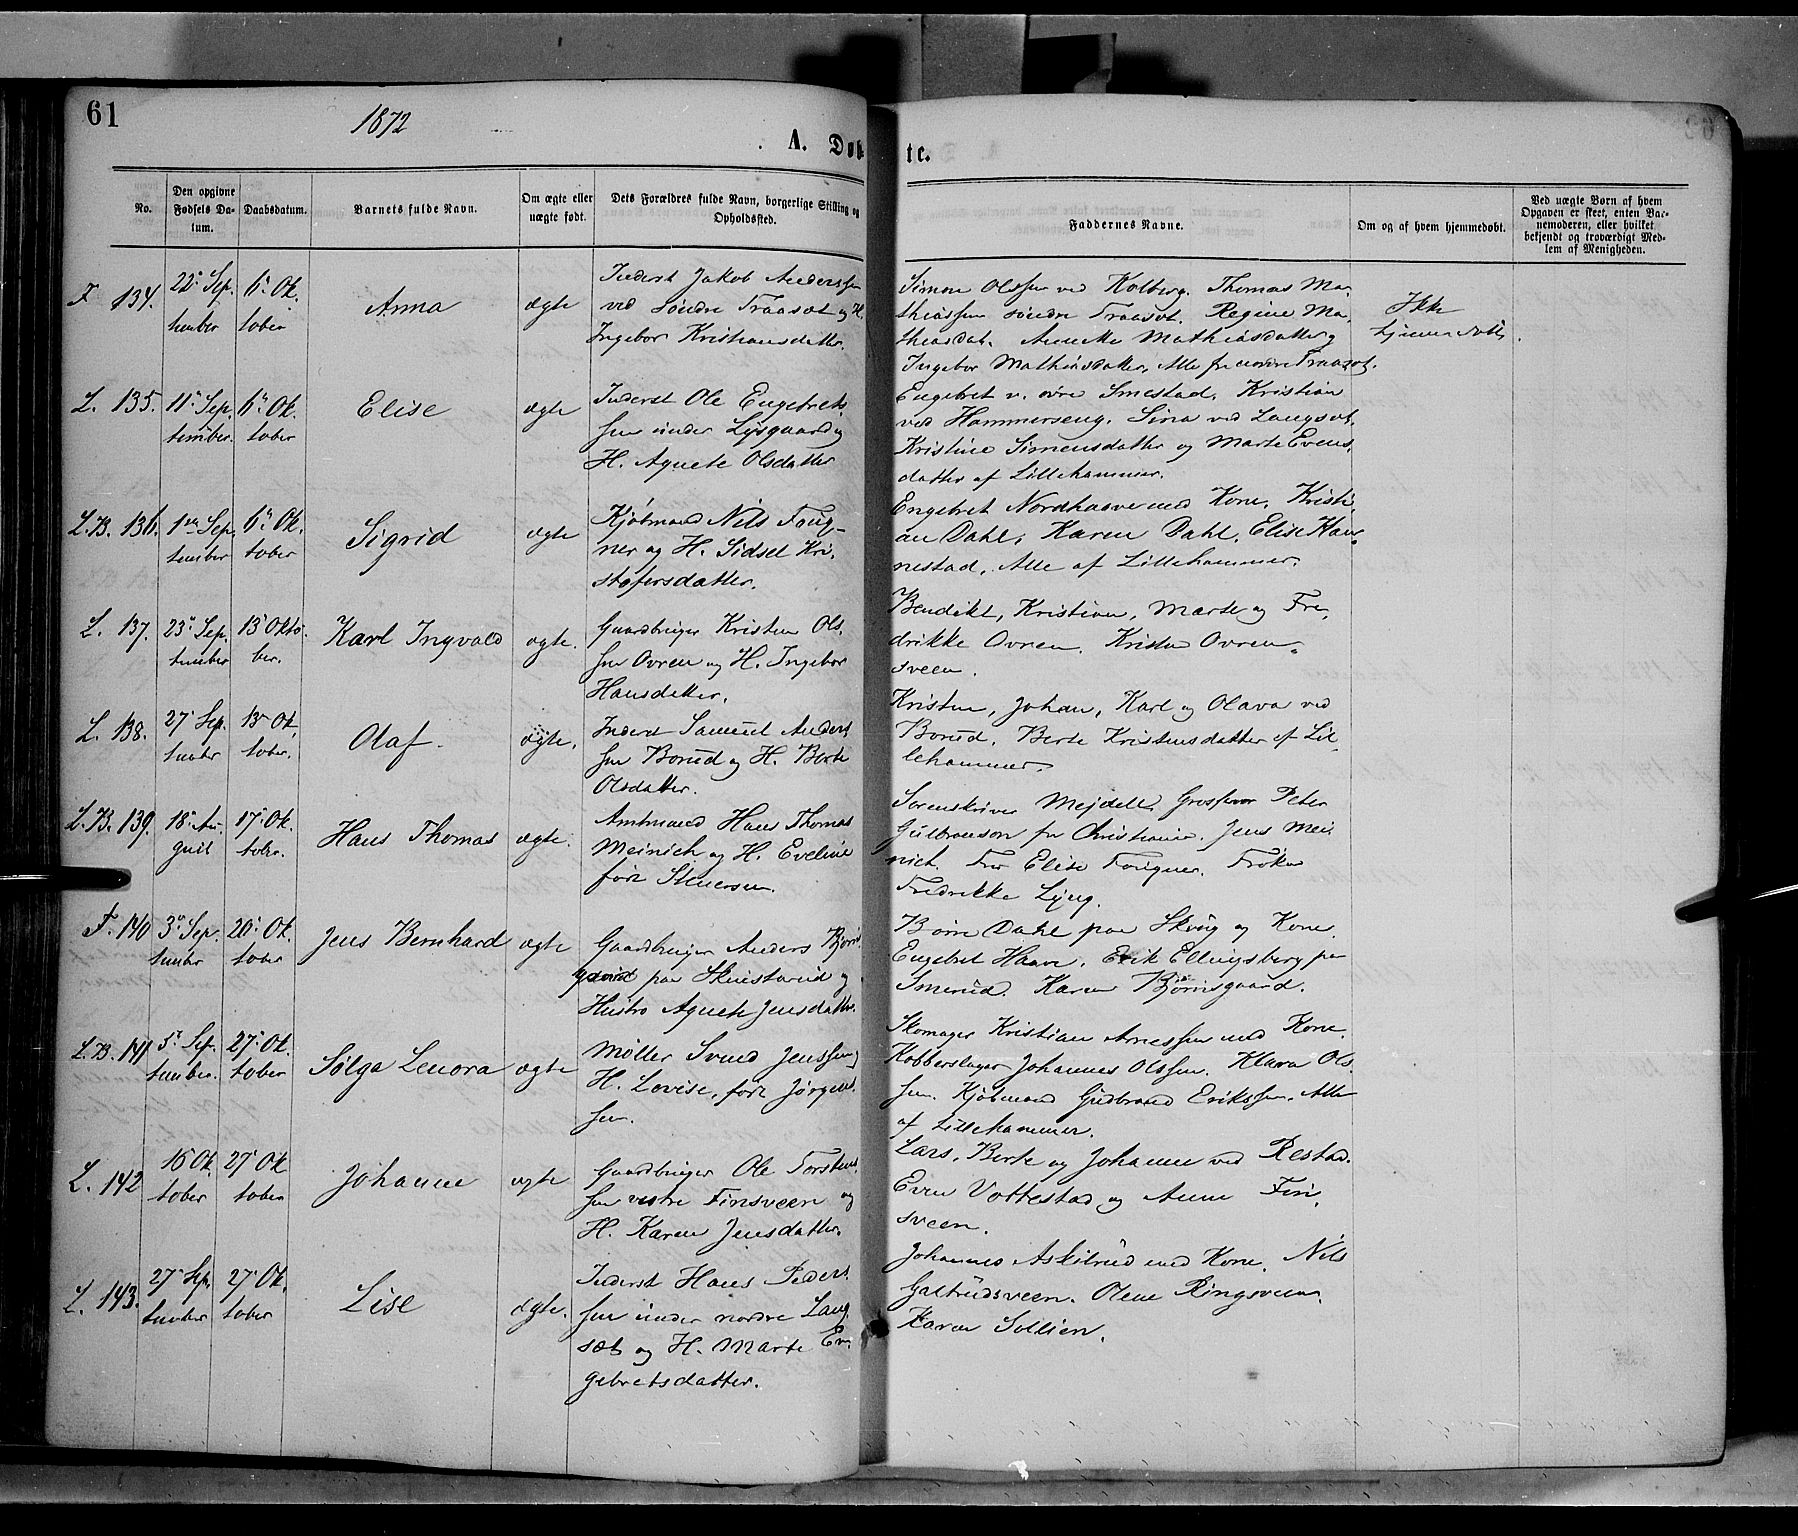 61
1872
A. Døb
te.
No.
Den opgivne Fødsels Da-
tum.
Daabsdatum.
Barnets fulde Navn.
Om ægte eller
uægte født.
Dets Forældres fulde Navn, borgerlige Stilling og
Opholdssted.
Faddernes Navne.
Om og af hvem hjemmedøbt.
Ved uægte Børn af hvem
Opgaven er skeet, enten Bar-
nemoderen, eller hvilket
bekjendt og troværdigt Med-
lem af Menigheden.
F. 134.
22' Sep.
tember
6' Ok.
tober
Anna
ægte
Inderst Jakob Anderssen
ved søndre Traaset og H.
Ingebor Kristiansdatter.
Simon Olssen ved Kolberg. Thomas Ma-
thiassen søndre Traaset. Regine Ma-
thiasdat. Anette Mathiasdatter og
Ingebor Mathiasdatter, Alle fr nordre Traaset.
Ikke
hjemmedøbt.
L. 135.
11' Sep.
tember.
6' Ok.
tober
Elise
ægte
Inderst Ole Engebrets
sen under Lysgaard og
H. Agnete Olsdatter
Engebret v. øvre Smestad. Kristian
ved Hammerseng. Sina ved Langset.
Kristine Simensdatter og Marte Evens-
datter af Lillehammer.
L.B. 136.
1ste Sep.
tember
6' Ok.
tober
Sigrid
ægte
Kjøbmand Nils Foug-
ner og H. Sidsel Kri-
stofersdatter.
Engebret Nordhaave med Kone. Kristi-
an Dahl, Karen Dahl, Elise Hau-
nestad. Alle af Lillehammer.
L. 137.
23' Sep.
tember
13' Okto-
ber.
Karl Ingvald
ægte.
Gaardbruger Kristen Ols-
sen Ovren og H. Ingebor
Hansdatter.
Bendikt, Kristian, Marte og Fre-
drikke Ovren. Kristen Ovren-
sveen.
L. 138.
27' Sep.
tember
13' Ok.
tober.
Olaf.
ægte.
Inderst Samuel Anders
sen Borud og H. Berte
Olsdatter.
Kristen, Johan, Karl og Olava ved
Borud. Berte Kristensdatter af Lil-
lehammer.
L.B. 139.
18' Au-
gust
17' Ok.
tober.
Hans Thomas
ægte.
Amtmand Hans Thomas
Meinich og H. Eveline
født Steuersen.
Sorenskriver Mejdell. Grosserer Peter
Gulbranson fr Christiania. Jens Mei
nich. Fru Elise Fougner. Frøken
Fredrikke Lyng.
F. 140
3' Sep.
tember
20' Ok.
tober
Jens Bernhard
ægte
Gaardbruger Anders Bjørns
gaard paa Skurstarud og
Hustro Agnete Jensdatter.
Børre Dahl paa Skoug og Kone.
Engebret Haave. Erik Ellingsberg paa
Smerud. Karen Bjørnsgaard.
L.B. 141
5' Sep.
tember.
27' Ok.
tober
Sølga Lenora
ægte
Møller Svend Jenssen og
H. Lovise, født Jørgens-
sen.
Skomager Kristian Arnessen med Kone.
Kobberslager Johannes Olssen. Klara Ols-
sen. Kjøbmand Gudbrand Erikssen. Alle
af Lillehammer.
L. 142
16 Ok.
tober
27' Ok
tober
Johanne
ægte
Gaardbruger Ole Torstens
sen vestre Finsveen og
H. Karen Jensdatter.
Lars, Berte og Johanne ved Restad.
Even Vottestad og Anne Fin-
sveen.
L. 143.
27' Sep.
tember
27' Ok.
tober
Lise
ægte.
Inderst Hans Peders
sen under nordre Lang
set og H. Marte En-
gebretsdatter.
Johannes Askilrud med Kone. Nils
Galtrudsveen. Olene Ringsveen.
Karen Sollien.